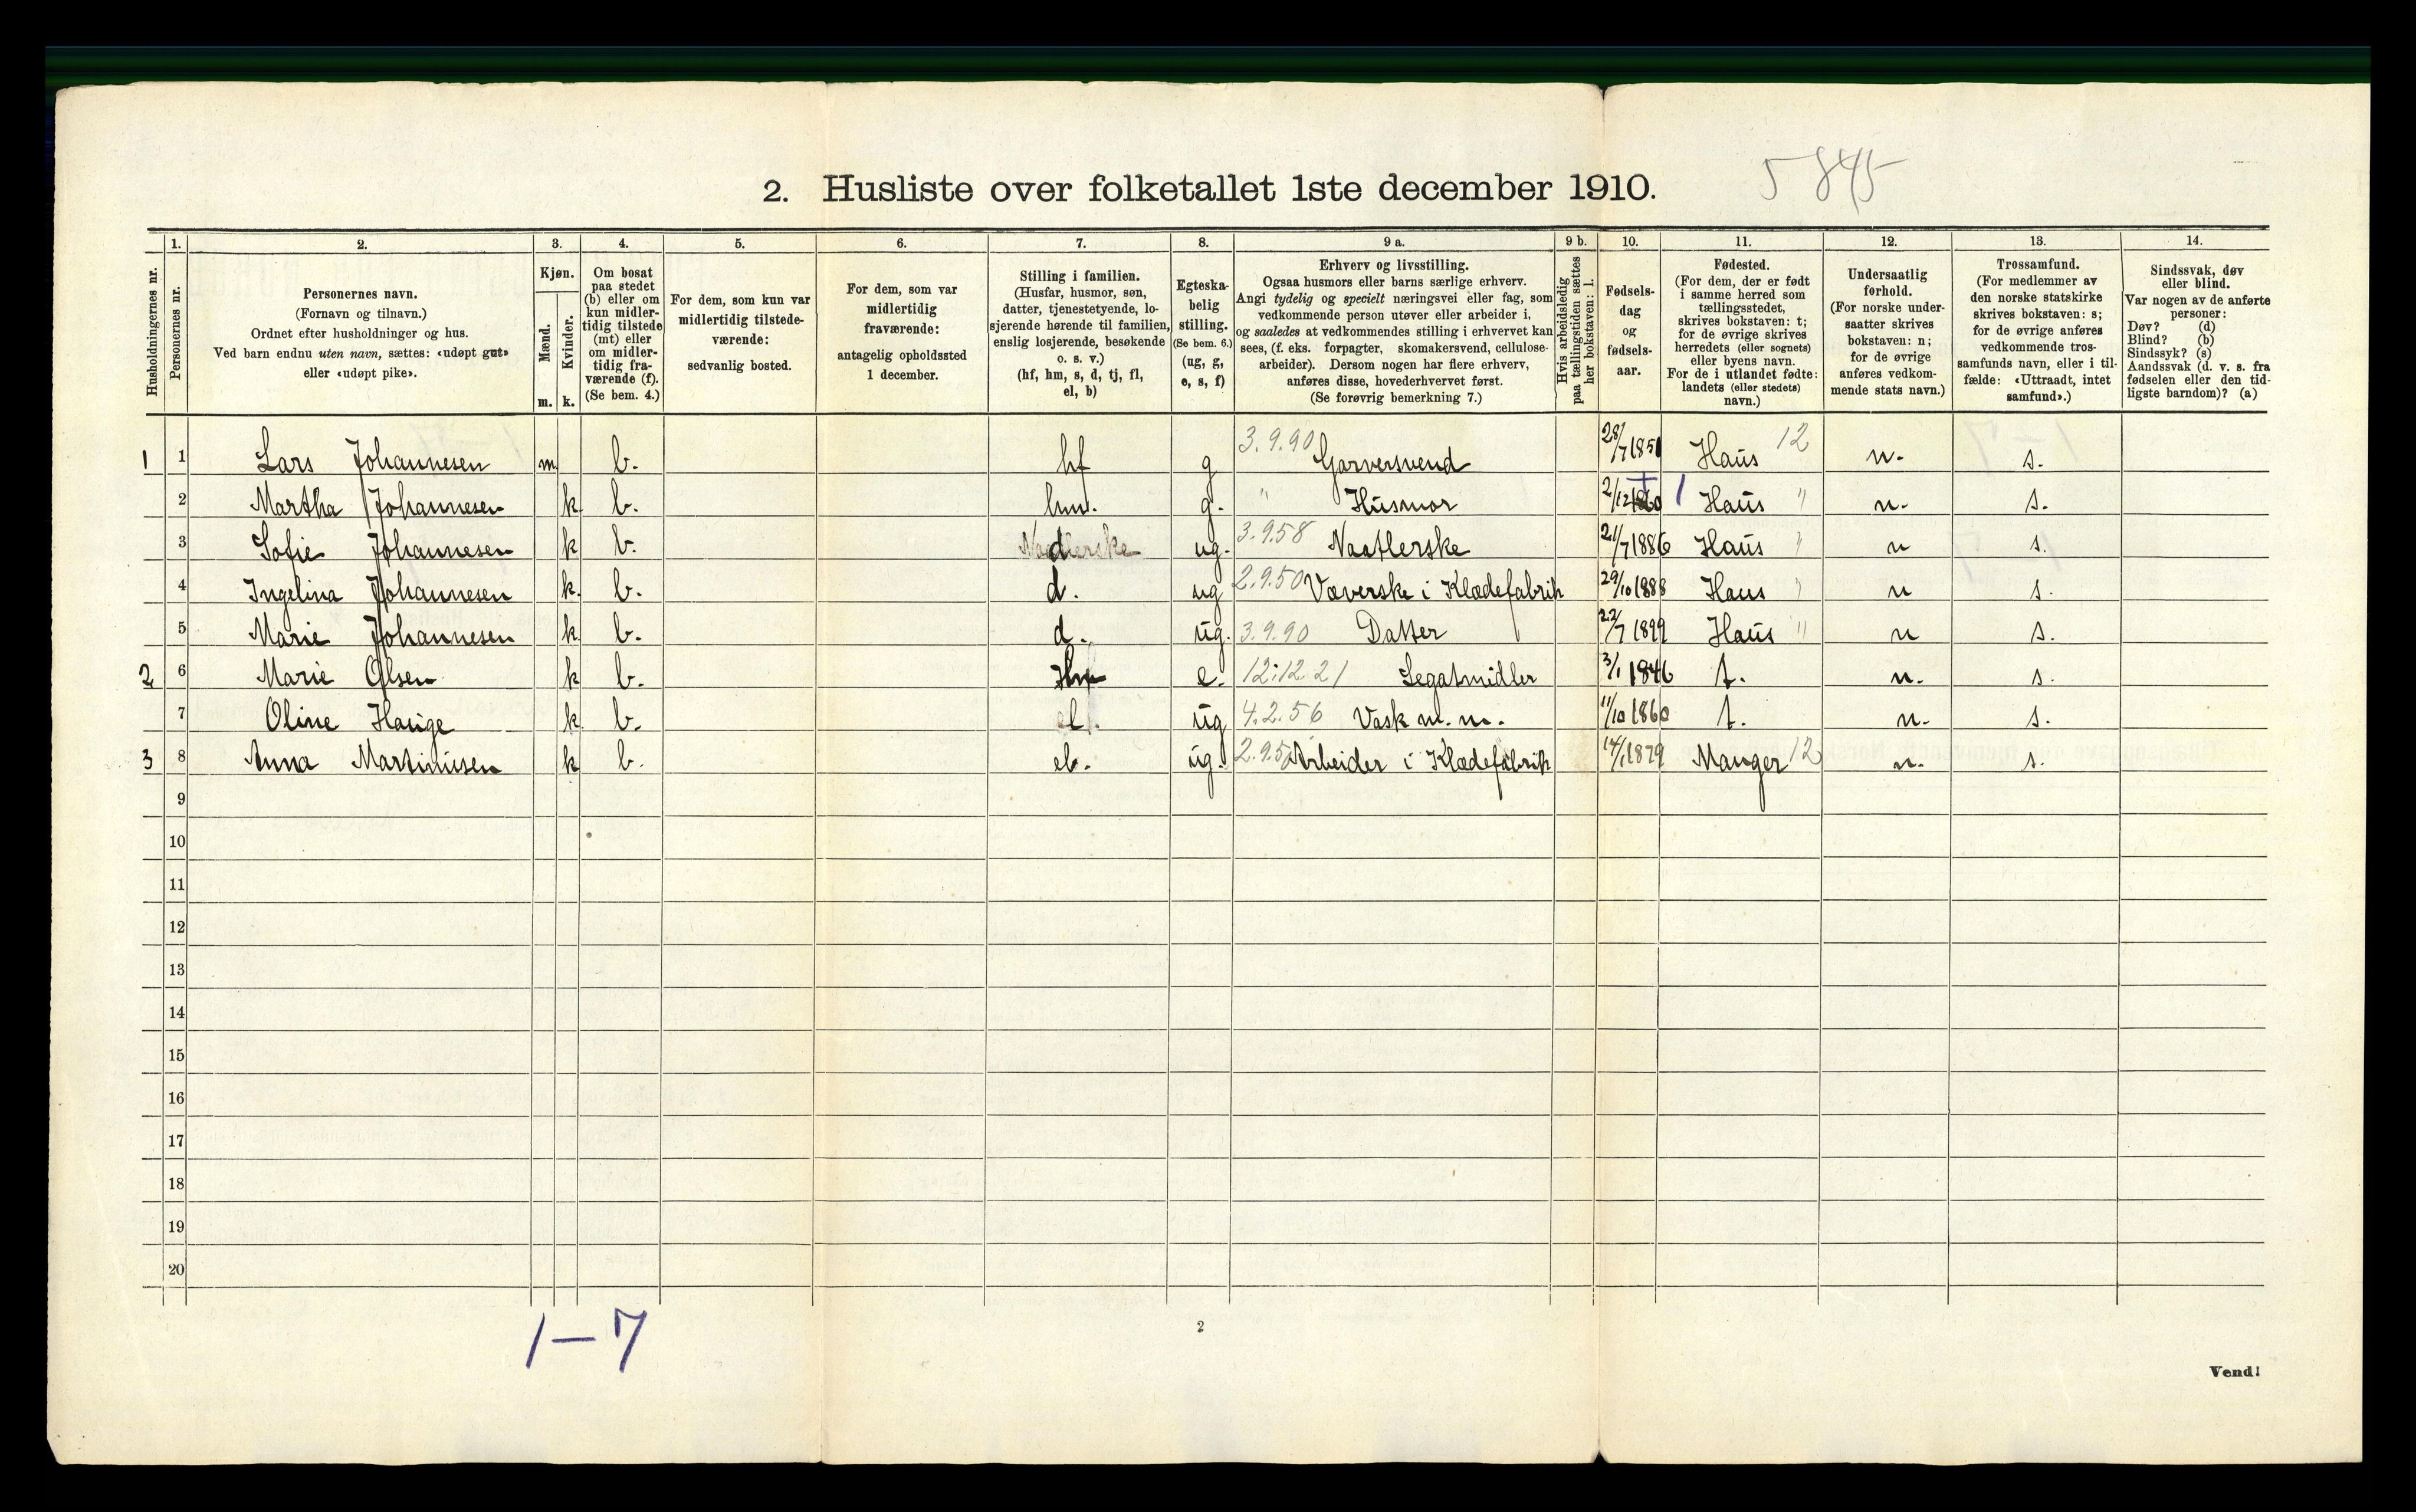 2. Husliste over folketallet 1ste december 1910. 5845
1. 2. 3. 4. 5. 6. 7. 8. 9 a. 9 b. 10. 11. 12. 13. 14.
Husholdningernes nr.
Personernes nr.
Personernes navn.
(Fornavn og tilnavn.)
Ordnet efter husholdninger og hus.
Ved barn endnu uten navn, sættes: «udøpt gut»
eller «udøpt pike».
Kjøn.
Mænd.
Kvinder.
m. k.
Om bosat
paa stedet
(b) eller om
kun midler-
tidig tilstede
(mt) eller
om midler-
tidig fra-
værende (f).
(Se bem. 4.)
For dem, som kun var
midlertidig tilstede-
værende:
sedvanlig bosted.
For dem, som var
midlertidig
fraværende:
antagelig opholdssted
1 december.
Stilling i familien.
(Husfar, husmor, søn,
datter, tjenestetyende, lo-
sjerende hørende til familien,
enslig losjerende, besøkende
o. s. v.)
(hf, hm, s, d, tj, fl,
el, b)
Egteska-
belig
stilling.
(Se bem. 6.)
(ug, g,
e, s, f)
Erhverv og livsstilling.
Ogsaa husmors eller barns særlige erhverv.
Angi tydelig og specielt næringsvei eller fag, som
vedkommende person utøver eller arbeider i,
og saaledes at vedkommendes stilling i erhvervet kan
sees, (f. eks. forpagter, skomakersvend, cellulose-
arbeider). Dersom nogen har flere erhverv,
anføres disse, hovederhvervet først.
(Se forøvrig bemerkning 7.)
Hvis arbeidsledig
paa tællingstiden sættes
her bokstaven: l.
Fødsels-
dag
og
fødsels-
aar.
Fødested.
(For dem, der er født
i samme herred som
tællingsstedet,
skrives bokstaven: t;
for de øvrige skrives
herredets (eller sognets)
eller byens navn.
For de i utlandet fødte:
landets (eller stedets)
navn.)
Undersaatlig
forhold.
(For norske under-
saatter skrives
bokstaven: n;
for de øvrige
anføres vedkom-
mende stats navn.)
Trossamfund.
(For medlemmer av
den norske statskirke
skrives bokstaven: s;
for de øvrige anføres
vedkommende tros-
samfunds navn, eller i til-
fælde: «Uttraadt, intet
samfund».)
Sindssvak, døv
eller blind.
Var nogen av de anførte
personer:
Døv? (d)
Blind? (b)
Sindssyk? (s)
Aandssvak (d. v. s. fra
fødselen eller den tid-
ligste barndom)? (a)
1 1 Lars Johannesen m b. hf g 3.9.90 Garversvend 28/7 1851 Haus 12 n. s.
2 Martha Johannesen k b. hm. g. " Husmor 2/12 1860 1 Haus " n. s.
3 Sofie Johannesen k b. d ug. 3.9.58 Naatlerske 21/7 1886 Haus " n s.
4 Ingelina Johannesen k. b. d. ug 2.9.50 Væverske i Klædefabrik 29/10 1888 Haus " n s.
5 Marie Johannesen k b. d. ug. 3.9.90 Datter 22/7 1899 Haus " n s.
2 6 Marie Olsen k b. hm e. 12.12.21 Legatmidler 3/1 1846 t. n. s.
7 Oline Hauge k b. el. ug 4.2.56 Vask m. m. 11/10 1860 t. n. s.
3 8 Anna Martinusen k b. el. ug. 2.9.5 Arbeider i Klædefabrik 14/1 1879 Manger 12 n. s.
9
10
11
12
13
14
15
16
17
18
19
20
1–7
2
Vend!